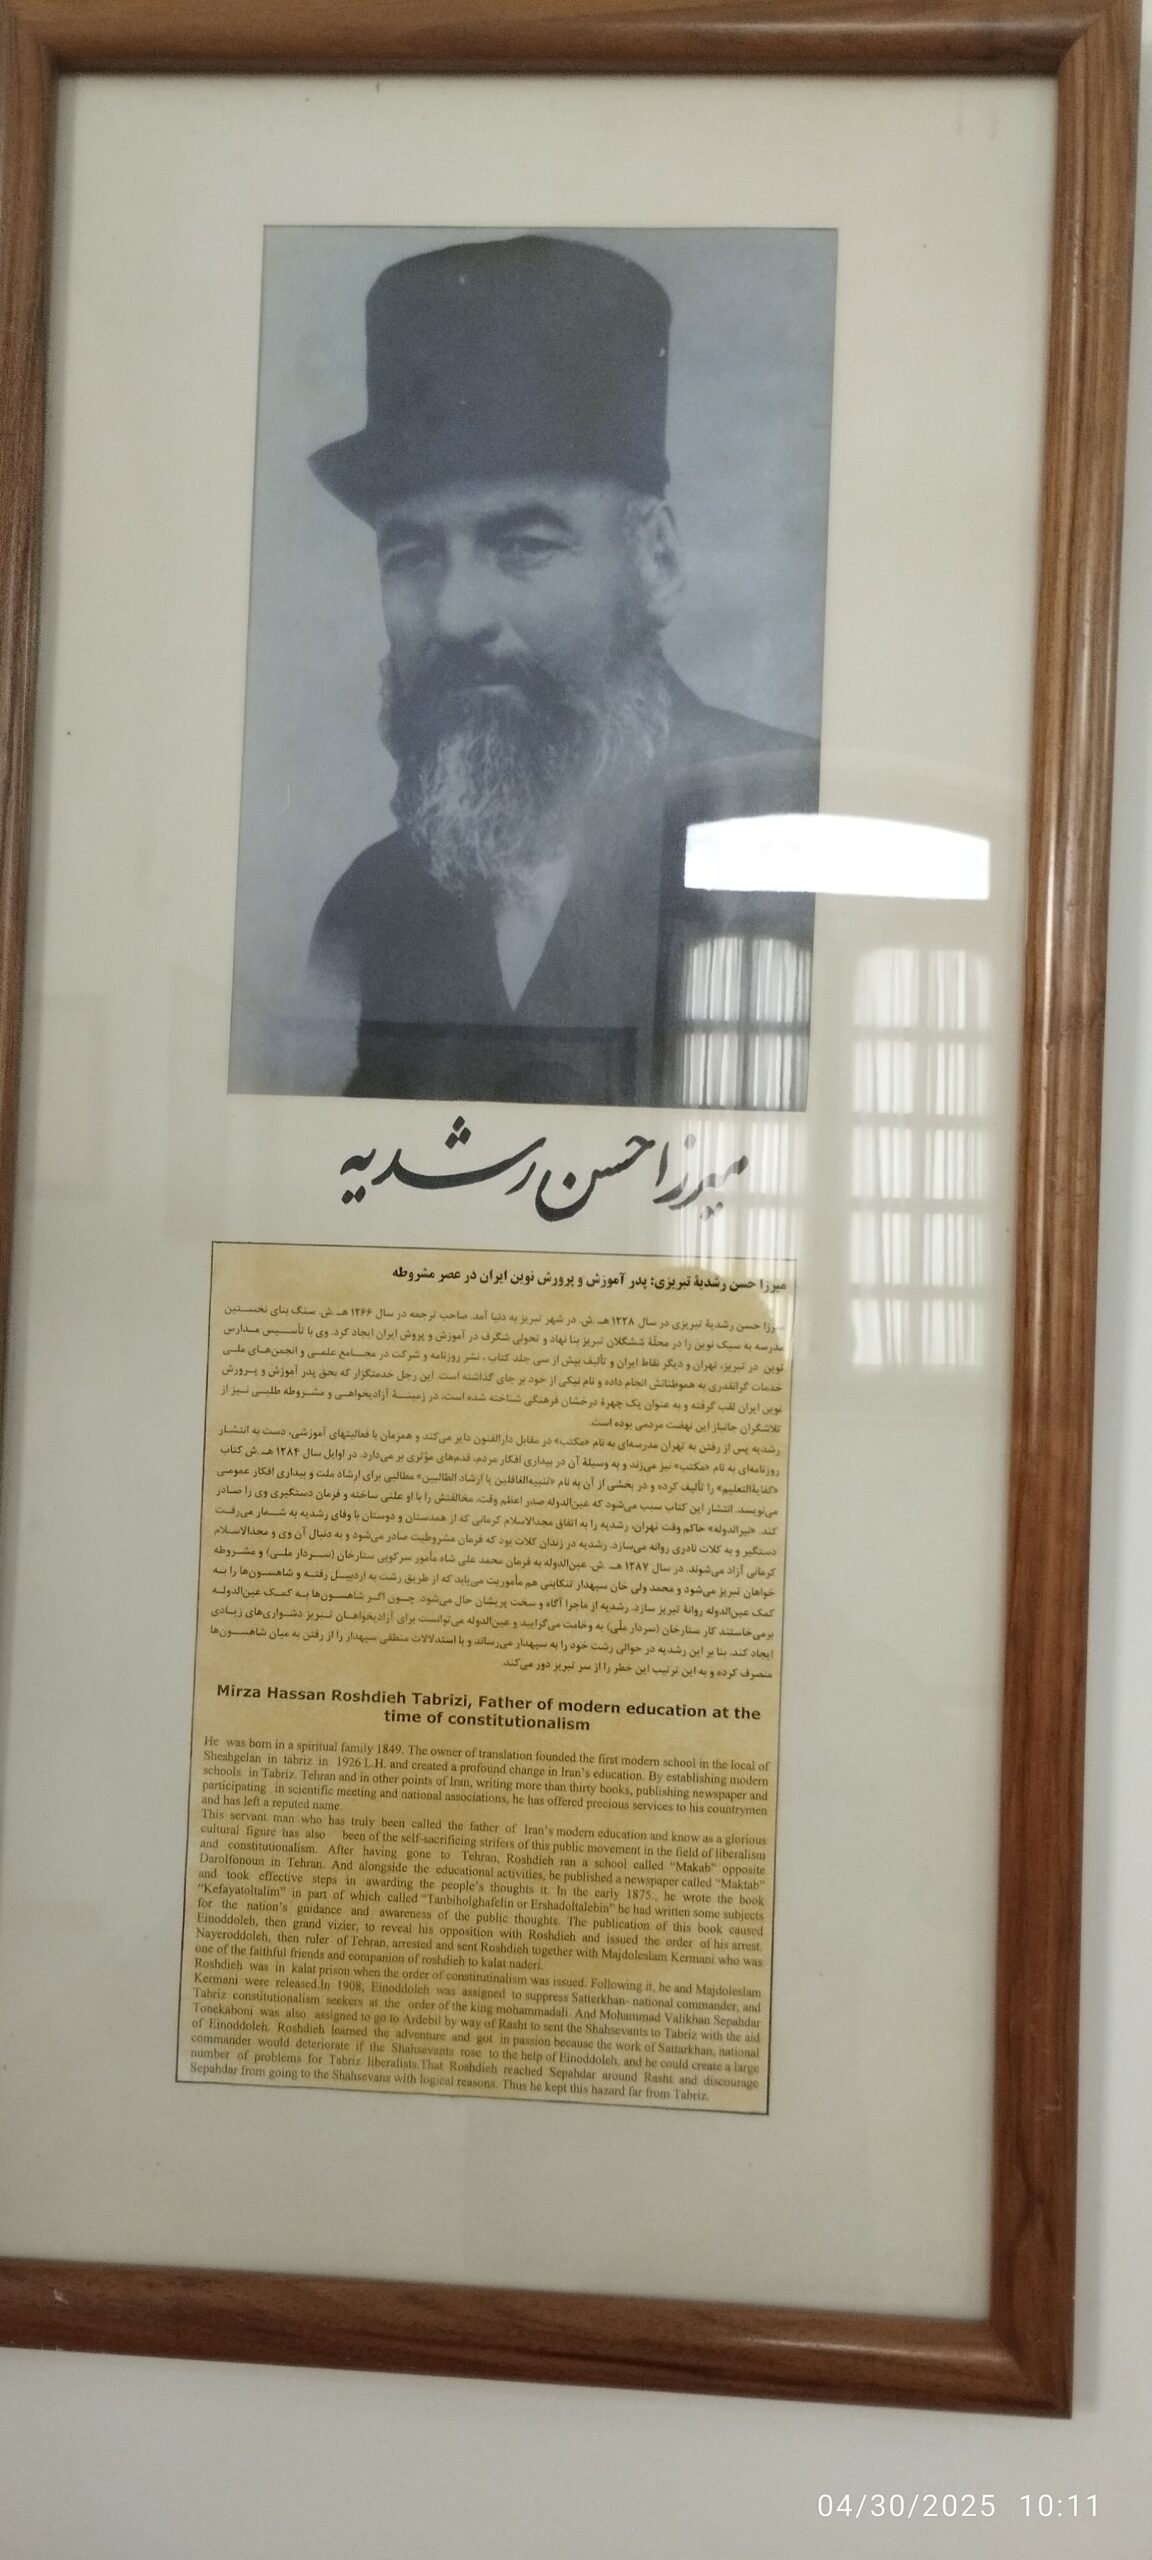 میرزا حسن رشدیه
میرزا حسن رشدیۀ تبریزی: پدر آموزش و پرورش نوین ایران در عصر مشروطه
میرزا حسن رشدیۀ تبریزی در سال ۱۲۲۸ هـ .ش. در شهر تبریز به دنیا آمد. صاحب ترجمه در سال ۱۲۶۶ هـ .ش. سنگ بنای نخستین
مدرسه به سبک نوین را در محلۀ ششگلان تبریز بنا نهاد و تحولی شگرف در آموزش و پروش ایران ایجاد کرد. وی با تأسیس مدارس
نوین در تبریز، تهران و دیگر نقاط ایران و تألیف بیش از سی جلد کتاب ، نشر روزنامه و شرکت در مجامع علمی و انجمن‌های ملی
خدمات گرانقدری به هموطنانش انجام داده و نام نیکی از خود بر جای گذاشته است. این رجل خدمتگزار که بحق پدر آموزش و پرورش
نوین ایران لقب گرفته و به عنوان یک چهرۀ درخشان فرهنگی شناخته شده است، در زمینۀ آزادیخواهی و مشروطه طلبی نیز از
تلاشگران جانباز این نهضت مردمی بوده است.
رشدیه پس از رفتن به تهران مدرسه‌ای به نام «مکتب» در مقابل دارالفنون دایر می‌کند و همزمان با فعالیتهای آموزشی، دست به انتشار
روزنامه‌ای به نام «مکتب» نیز می‌زند و به وسیلۀ آن در بیداری افکار مردم، قدم‌های مؤثری بر می‌دارد. در اوایل سال ۱۲۸۴ هـ .ش کتاب
«کفایةالتعلیم» را تألیف کرده و در بخشی از آن به نام «تنبیه‌الغافلین یا ارشاد الطالبین» مطالبی برای ارشاد ملت و بیداری افکار عمومی
می‌نویسد. انتشار این کتاب سبب می‌شود که عین‌الدوله صدر اعظم وقت، مخالفتش را با او علنی ساخته و فرمان دستگیری وی را صادر
کند. «نیرالدوله» حاکم وقت تهران، رشدیه را به اتفاق مجدالاسلام کرمانی که از همدستان و دوستان با وفای رشدیه به شمار می‌رفت
دستگیر و به کلات نادری روانه می‌سازد. رشدیه در زندان کلات بود که فرمان مشروطیت صادر می‌شود و به دنبال آن وی و مجدالاسلام
کرمانی آزاد می‌شوند. در سال ۱۲۸۷ هـ .ش. عین‌الدوله به فرمان محمد علی شاه مأمور سرکوبی ستارخان (سردار ملی) و مشروطه
خواهان تبریز می‌شود و محمد ولی خان سپهدار تنکابنی هم مأموریت می‌یابد که از طریق رشت به اردبیل رفته و شاهسون‌ها را به
کمک عین‌الدوله روانۀ تبریز سازد. رشدیه از ماجرا آگاه و سخت پریشان حال می‌شود. چون اگر شاهسون‌ها به کمک عین‌الدوله
برمی‌خاستند کار ستارخان (سردار ملّی) به وخامت می‌گرایید و عین‌الدوله می‌توانست برای آزادیخواهان تبریز دشواری‌های زیادی
ایجاد کند. بنا بر این رشدیه در حوالی رشت خود را به سپهدار می‌رساند و با استدلالات منطقی سپهدار را از رفتن به میان شاهسون‌ها
منصرف کرده و به این ترتیب این خطر را از سر تبریز دور می‌کند.
Mirza Hassan Roshdieh Tabrizi, Father of modern education at the
time of constitutionalism
He was born in a spiritual family 1849. The owner of translation founded the first modern school in the local of
Sheshgelan in tabriz in 1926 L.H. and created a profound change in Iran's education. By establishing modern
schools in Tabriz. Tehran and in other points of Iran, writing more than thirty books, publishing newspaper and
participating in scientific meeting and national associations, he has offered precious services to his countrymen
and has left a reputed name.
This servant man who has truly been called the father of Iran's modern education and know as a glorious
cultural figure has also been of the self-sacrificing strifers of this public movement in the field of liberalism
and constitutionalism. After having gone to Tehran, Roshdieh ran a school called "Makab" opposite
Darolfonoun in Tehran. And alongside the educational activities, he published a newspaper called "Maktab"
and took effective steps in awarding the people's thoughts it. In the early 1875., he wrote the book
"Kefayatoltalim" in part of which called "Tanbiholghafelin or Ershadoltalebin" he had written some subjects
for the nation's guidance and awareness of the public thoughts. The publication of this book caused
Einoddoleh, then grand vizier, to reveal his opposition with Roshdieh and issued the order of his arrest.
Nayeroddoleh, then ruler of Tehran, arrested and sent Roshdieh together with Majdoleslam Kermani who was
one of the faithful friends and companion of roshdieh to kalat naderi.
Roshdieh was in kalat prison when the order of constitutinalism was issued. Following it, he and Majdoleslam
Kermani were released.In 1908, Einoddoleh was assigned to suppress Satterkhan- national commander, and
Tabriz constitutionalism seekers at the order of the king mohammadali. And Mohammad Valikhan Sepahdar
Tonekaboni was also assigned to go to Ardebil by way of Rasht to sent the Shahsevants to Tabriz with the aid
of Einoddoleh. Roshdieh learned the adventure and got in passion because the work of Sattarkhan, national
commander would deteriorate if the Shahsevants rose to the help of Einoddoleh, and he could create a large
number of problems for Tabriz liberalists.That Roshdieh reached Sepahdar around Rasht and discourage
Sepahdar from going to the Shahsevans with logical reasons. Thus he kept this hazard far from Tabriz.
04/30/2025 10:11